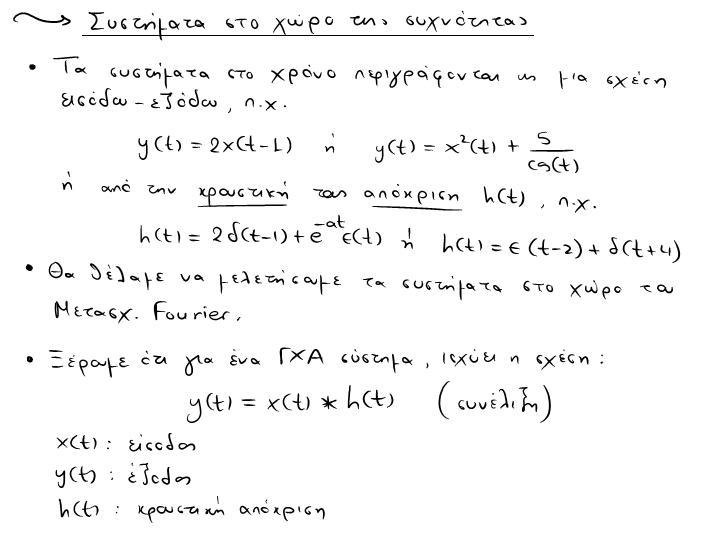 Συστήματα στο χώρο της συχνότητας
• Τα συστήματα στο χρόνο περιγράφονται με μια σχέση
εισόδου - εξόδου, π.χ.
y(t) = 2x(t-1) ή y(t) = x²(t) + 5/cos(t)
ή από την κρουστική τους απόκριση h(t), π.χ.
h(t) = 2δ(t-1) + e^{-at}ε(t) ή h(t) = ε(t-2) + δ(t+4)
• Θα θέλαμε να μελετήσουμε τα συστήματα στο χώρο του
Μετασχ. Fourier.
• Ξέρουμε ότι για ένα ΓΧΑ σύστημα, ισχύει η σχέση:
y(t) = x(t) * h(t) (συνέλιξη)
x(t) : είσοδος
y(t) : έξοδος
h(t) : κρουστική απόκριση